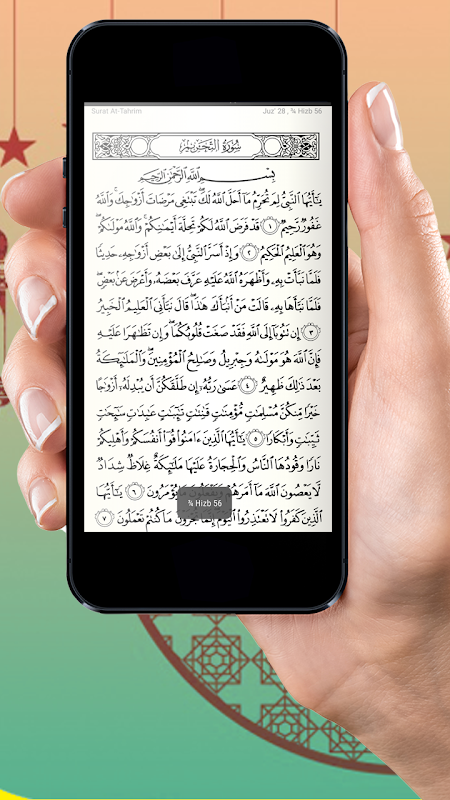 Surat At-Tahrim
Juz' 28 , ¾ Hizb 56
سُورَةُ التَّحْرِيمِ
بِسْمِ ٱللَّهِ ٱلرَّحْمَٰنِ ٱلرَّحِيمِ
يَٰٓأَيُّهَا ٱلنَّبِيُّ لِمَ تُحَرِّمُ مَآ أَحَلَّ ٱللَّهُ لَكَۖ تَبْتَغِى مَرْضَاتَ أَزْوَٰجِكَۚ وَٱللَّهُ
غَفُورٌ رَّحِيمٌ ١ قَدْ فَرَضَ ٱللَّهُ لَكُمْ تَحِلَّةَ أَيْمَٰنِكُمْۚ وَٱللَّهُ مَوْلَىٰكُمْۖ
وَهُوَ ٱلْعَلِيمُ ٱلْحَكِيمُ ٢ وَإِذْ أَسَرَّ ٱلنَّبِيُّ إِلَىٰ بَعْضِ أَزْوَٰجِهِۦ حَدِيثًا
فَلَمَّا نَبَّأَتْ بِهِۦ وَأَظْهَرَهُ ٱللَّهُ عَلَيْهِ عَرَّفَ بَعْضَهُۥ وَأَعْرَضَ عَنۢ بَعْضٍۖ
فَلَمَّا نَبَّأَهَا بِهِۦ قَالَتْ مَنْ أَنۢبَأَكَ هَٰذَاۖ قَالَ نَبَّأَنِىَ ٱلْعَلِيمُ ٱلْخَبِيرُ
٣ إِن تَتُوبَآ إِلَى ٱللَّهِ فَقَدْ صَغَتْ قُلُوبُكُمَاۖ وَإِن تَظَٰهَرَا عَلَيْهِ
فَإِنَّ ٱللَّهَ هُوَ مَوْلَىٰهُ وَجِبْرِيلُ وَصَٰلِحُ ٱلْمُؤْمِنِينَۖ وَٱلْمَلَٰٓئِكَةُ
بَعْدَ ذَٰلِكَ ظَهِيرٌ ٤ عَسَىٰ رَبُّهُۥٓ إِن طَلَّقَكُنَّ أَن يُبْدِلَهُۥٓ أَزْوَٰجًا
خَيْرًا مِّنكُنَّ مُسْلِمَٰتٍ مُّؤْمِنَٰتٍ قَٰنِتَٰتٍ تَٰٓئِبَٰتٍ عَٰبِدَٰتٍ سَٰٓئِحَٰتٍ
ثَيِّبَٰتٍ وَأَبْكَارًا ٥ يَٰٓأَيُّهَا ٱلَّذِينَ ءَامَنُوا۟ قُوٓا۟ أَنفُسَكُمْ وَأَهْلِيكُمْ
نَارًا وَقُودُهَا ٱلنَّاسُ وَٱلْحِجَارَةُ عَلَيْهَا مَلَٰٓئِكَةٌ غِلَاظٌ شِدَادٌ
لَّا يَعْصُونَ ٱللَّهَ مَآ أَمَرَهُمْ وَيَفْعَلُونَ مَا يُؤْمَرُونَ ٦ يَٰٓأَيُّهَا
ٱلَّذِينَ كَفَرُوا۟ لَا تَعْتَذِرُوا۟ ٱلْيَوْمَۖ إِنَّمَا تُجْزَوْنَ مَا كُنتُمْ تَعْمَلُونَ ٧
¾ Hizb 56